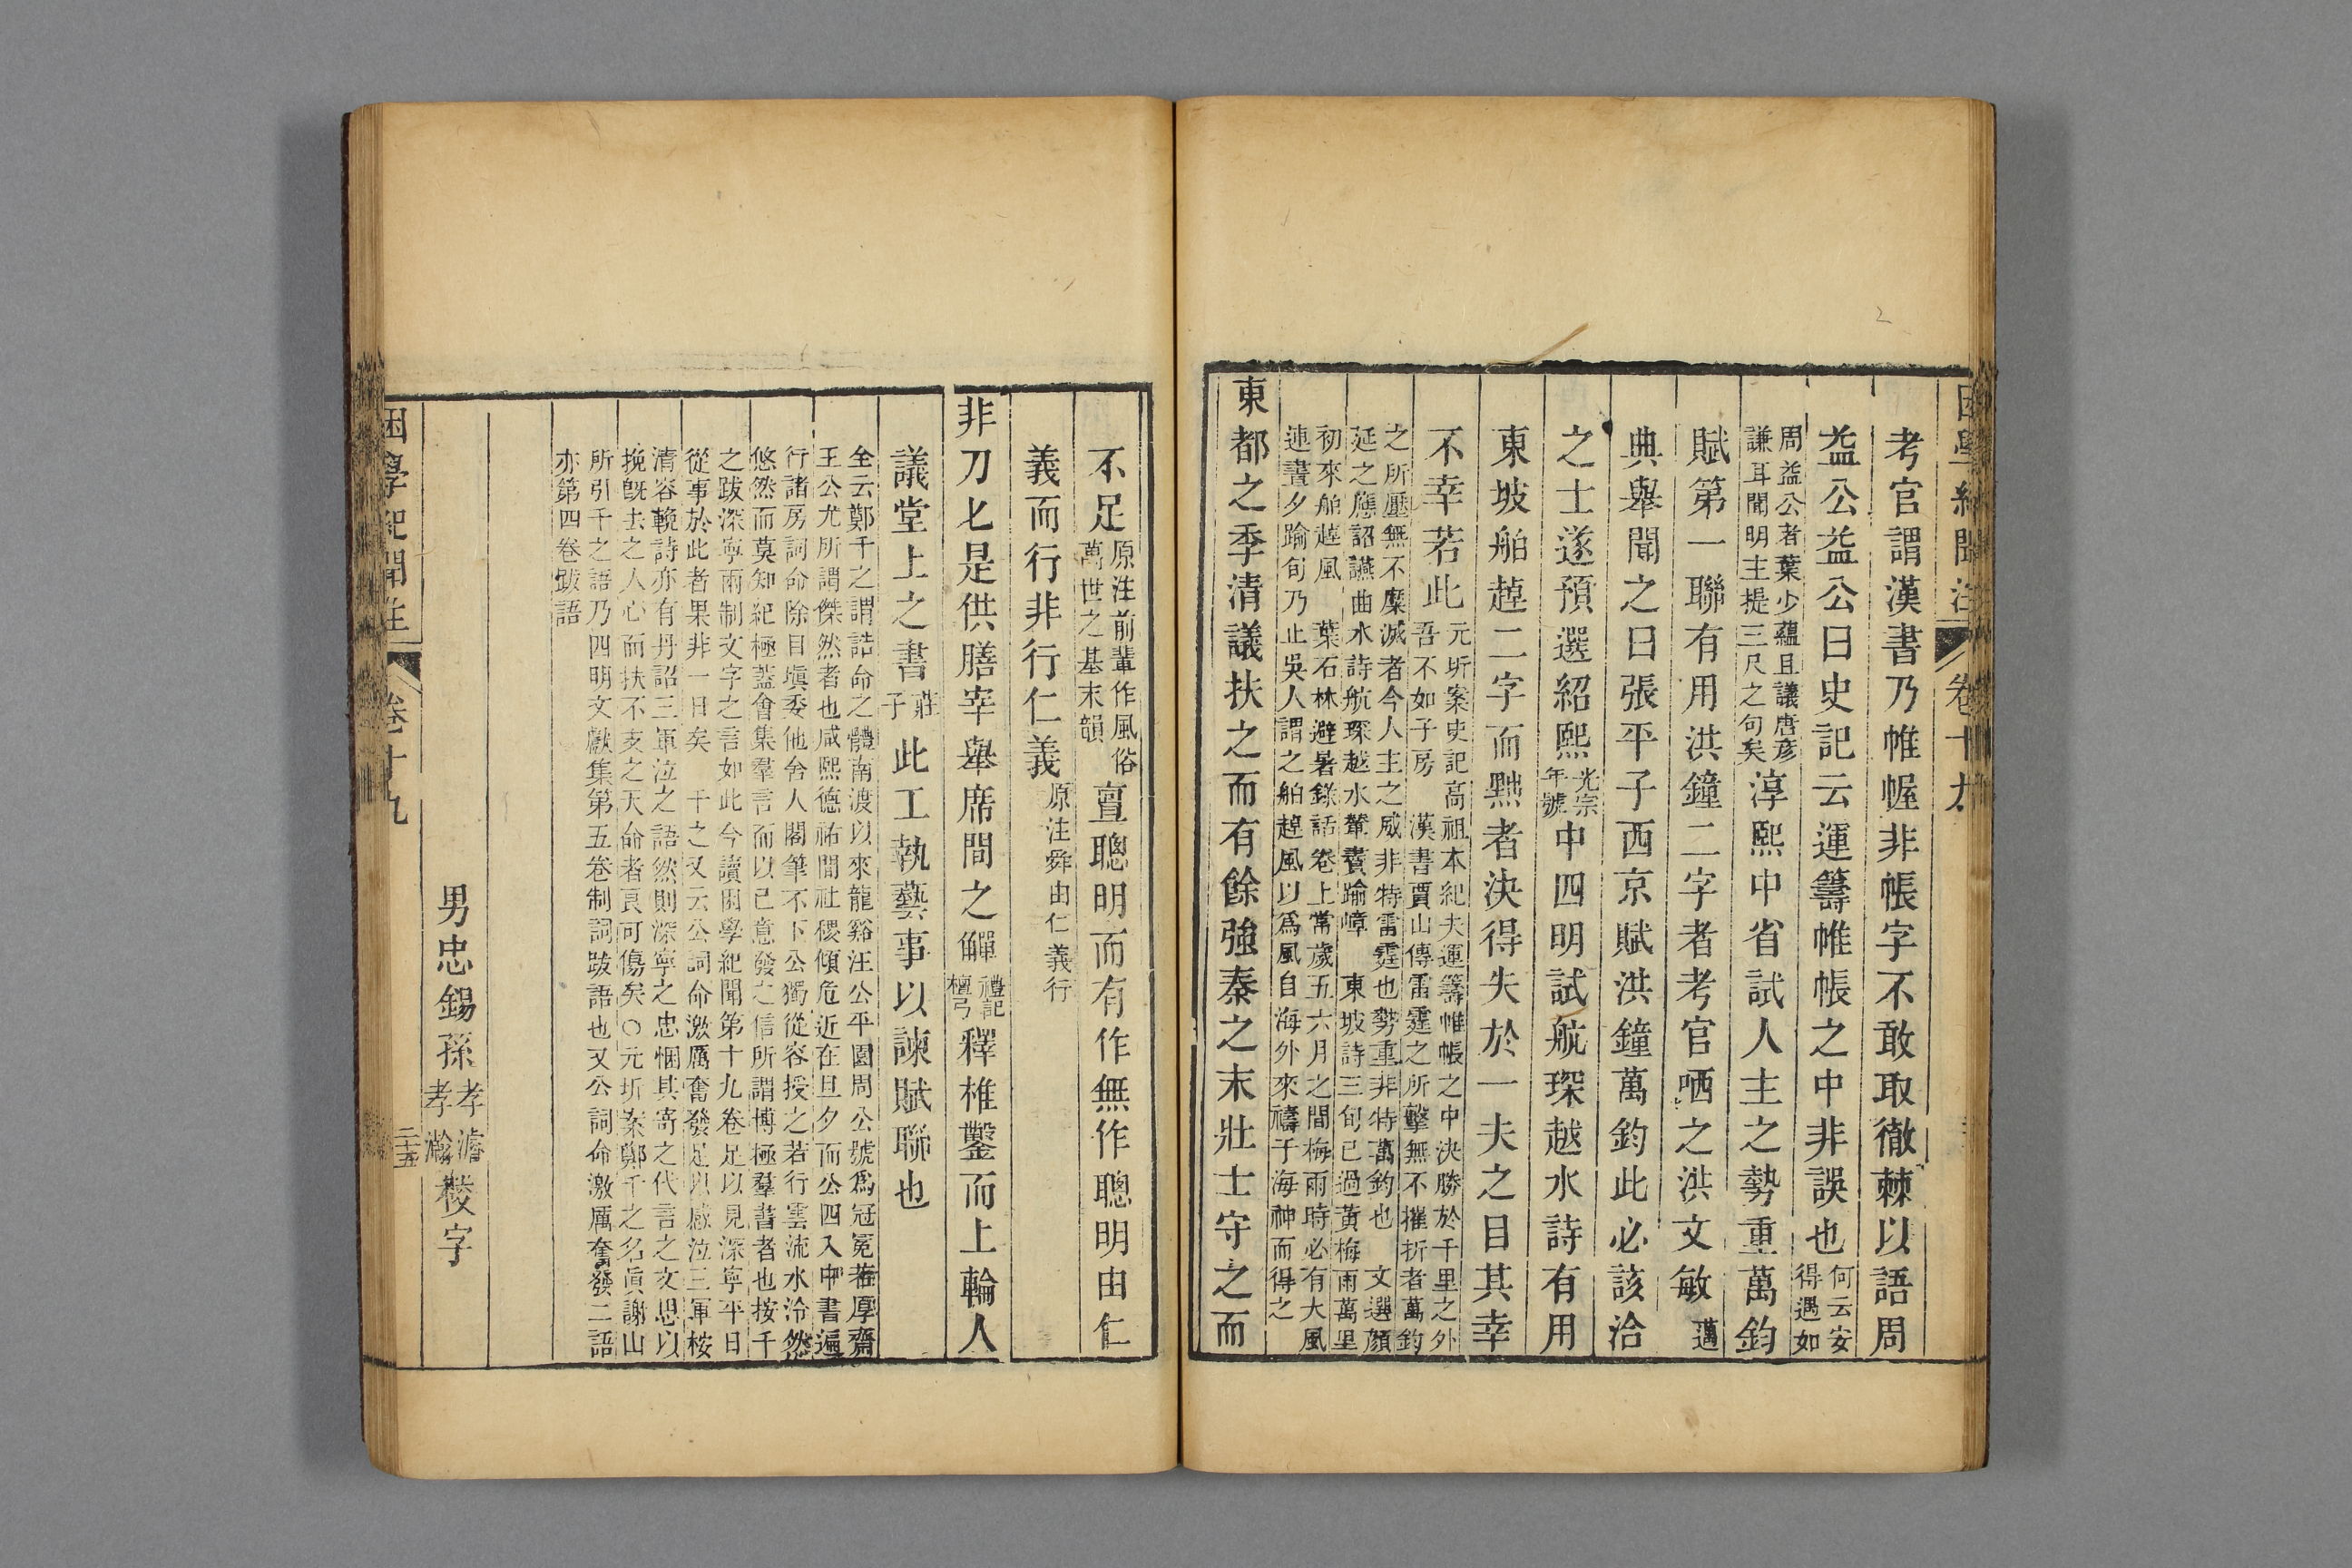 困學紀聞注 卷十九
考官謂漢書乃帷幄非帳字不敢取徹棘以語周
益公益公曰史記云運籌帷帳之中非誤也何云安得遇如
周益公者葉少蘊且議唐彥謙耳聞明主提三尺之句矣淳熙中省試人主之勢重萬鈞
賦第一聯有用洪鐘二字者考官哂之洪文敏邁
典舉聞之曰張平子西京賦洪鐘萬鈞此必該洽
之士遂預選紹熙光宗年號中四明試航琛越水詩有用
東坡舶趠二字而黜者決得失於一夫之目其幸
不幸若此元圻案史記高祖本紀夫運籌帷帳之中決勝於千里之外吾不如子房 漢書賈山傳雷霆之所擊無不摧折者萬鈞
之所壓無不糜滅者今人主之威非特雷霆也勢重非特萬鈞也 文選顏延之應詔讌曲水詩航琛越水輦賮踰嶂 東坡詩三旬已過黃梅雨萬里
初來舶趠風 葉石林避暑錄話卷上常歲五六月之間梅雨時必有大風連晝夕踰旬乃止吳人謂之舶趠風以爲風自海外來禱于海神而得之
東都之季清議扶之而有餘強秦之末壯士守之而
不足原注前輩作風俗萬世之基末韻亶聰明而有作無作聰明由仁
義而行非行仁義原注舜由仁義行
非刀匕是供膳宰舉席間之觶禮記檀弓釋椎鑿而上輪人
議堂上之書莊子此工執藝事以諫賦聯也
全云鄭千之謂誥命之體南渡以來龍谿汪公平園周公號爲冠冕若厚齋
王公尤所謂傑然者也咸熙德祐間社稷傾危近在旦夕而公四入中書遍
行諸房詞命除目塡委他舍人閣筆不下公獨從容授之若行雲流水泠然
悠然而莫知紀極蓋會集羣言而以己意發之信所謂博極羣書者也按千
之跋深寧兩制文字之言如此今讀困學紀聞第十九卷足以見深寧平日
從事於此者果非一日矣 千之又云公詞命激厲奮發足以感泣三軍桉
清容輓詩亦有丹詔三軍泣之語然則深寧之忠悃其寄之代言之文思以
挽旣去之人心而扶不支之天命者良可傷矣○元圻案鄭千之名眞謝山
所引千之語乃四明文獻集第五卷制詞跋語也又公詞命激厲奮發二語
亦第四卷跋語
男忠錫孫孝濬孝瀚校字
困學紀聞注 卷十九 二十五